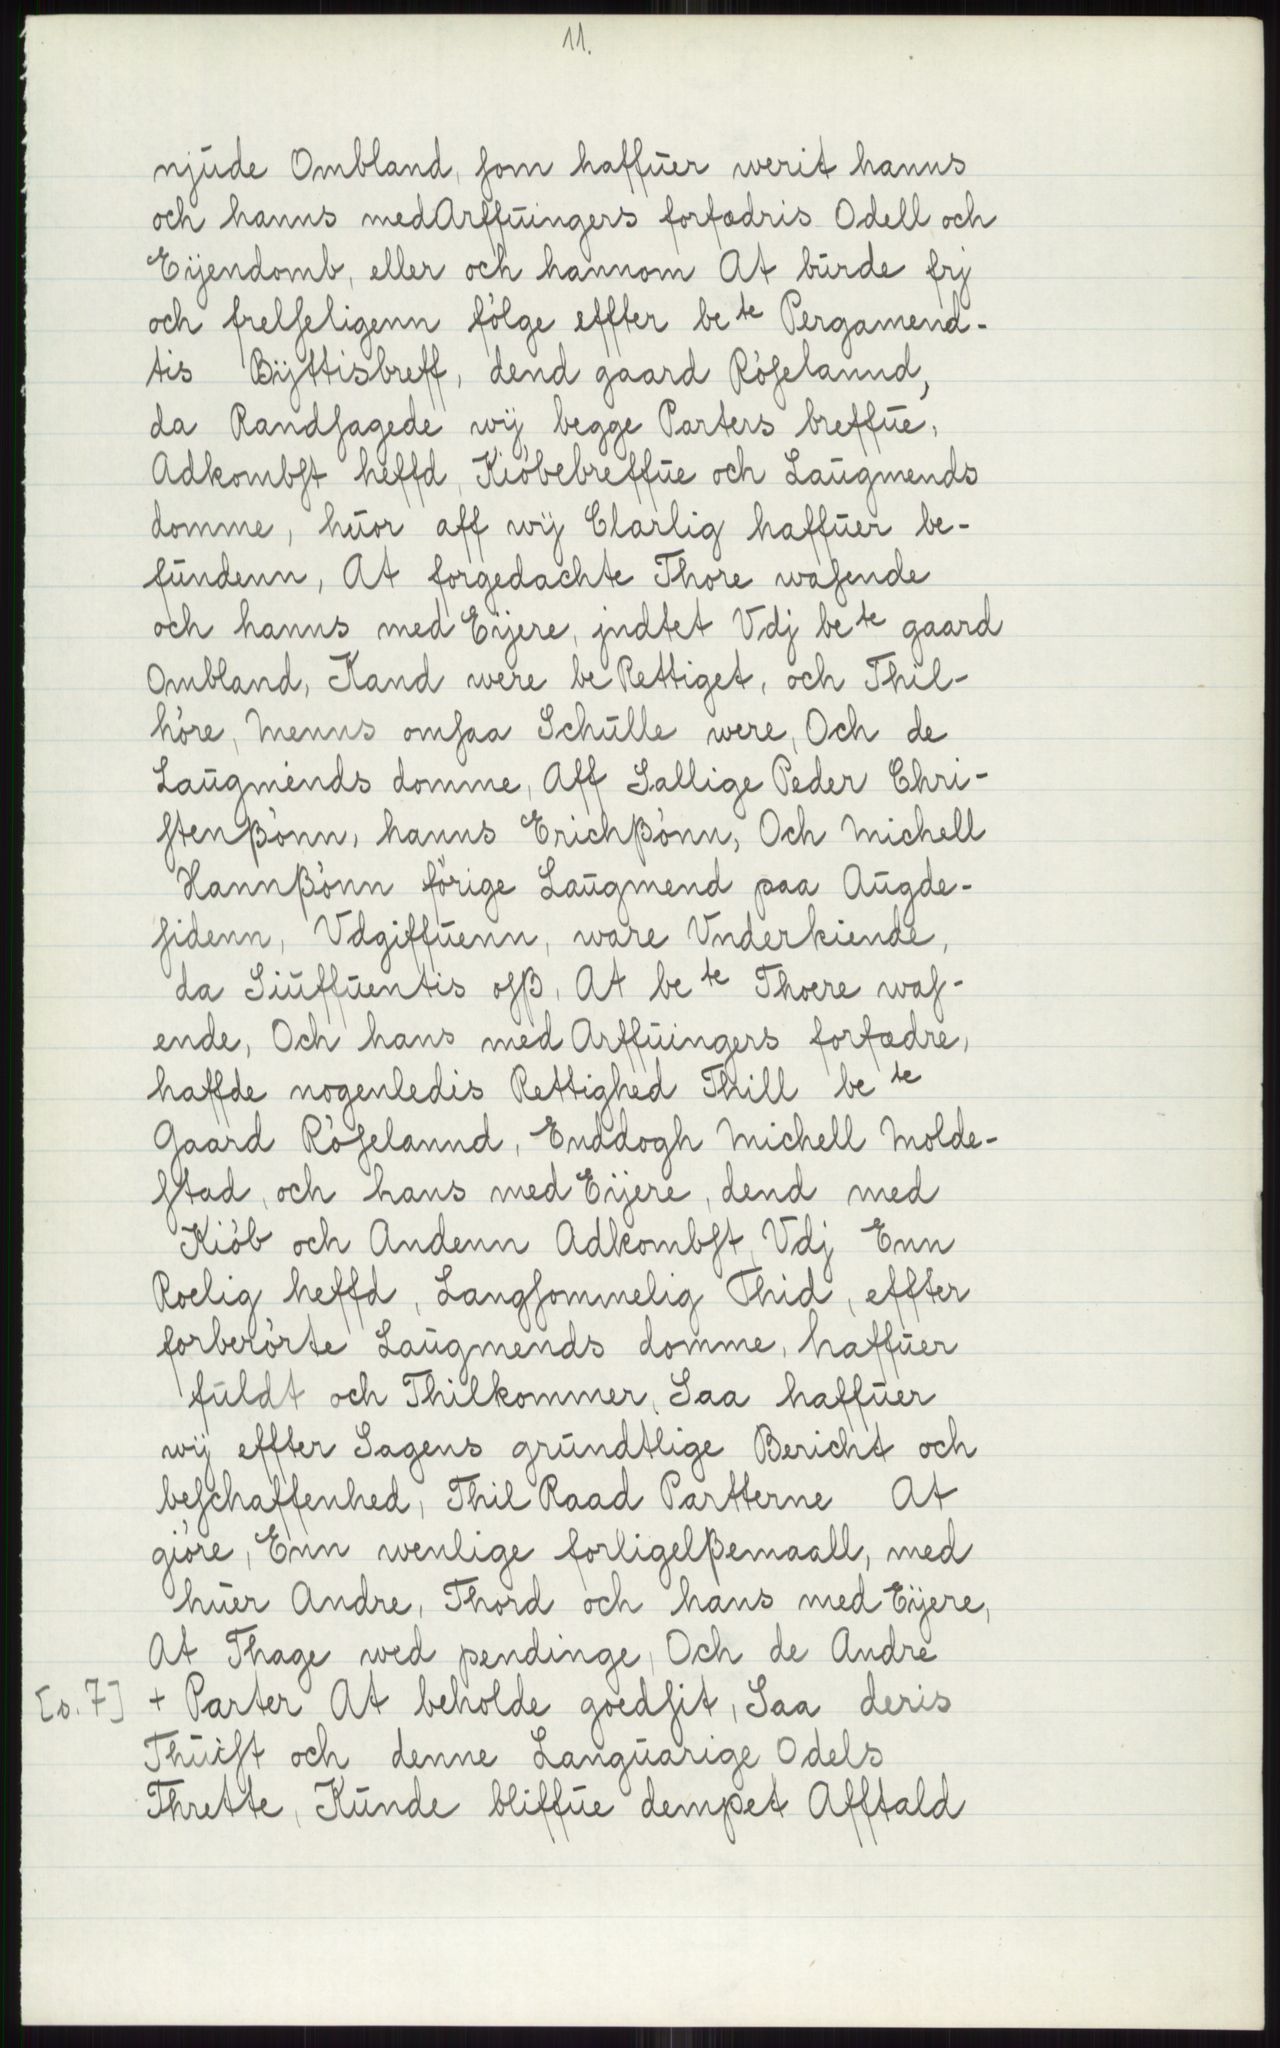 11.
njude Ombland, som haffuer werit hanns
och hanns medArffuingers forfædris Odell och
Eijendomb, eller och hannom At burde frj
och frelseligenn følge effter be te Pergamend-
tis Bÿttisbreff, dend gaard Røselannd,
da Randsagede wÿ begge Parters breffue,
Adkombst heffd, Kiøbebreffue och Laugmends
domme, huor aff wÿ Clarlig haffuer be-
fundenn, At forgedachte Thore wasende
och hanns med Eÿere, jndtet Vdj be te gaard
Ombland, Kand were be Rettiget, och Thil-
høre, Menns omsaa Schulle were, Och de
Laugmends domme, Aff Sallige Peder Chri-
stenßønn, hanns Erichßønn, Och Michell
Hannßønn førige Laugmend paa Augde-
sidenn, Vdgiffuenn, ware Vnderkiende,
da Siuffuentis osß, At be te Thore was-
ende, Och hans med Arffuingers forfædre,
haffde nogenledis Rettighed Thill be te
Gaard Røselannd, Enddogh Michell Molde-
stad, och hans med Eÿere, dend med
Kiøb och Andenn Adkombst, Vdj Enn
Roelig heffd, Langsommelig Thid, effter
forberørte Laugmends domme, haffuer
fuldt och Thilkommer, Saa haffuer
wÿ effter Sagens grundtlige Bericht och
beschaffenhed, Thil Raad Partterne At
giøre, Enn wenlige forligelßemaall, med
huer Andre, Thord och hans med Eÿere,
At Thage wed pendinge, Och de Andre
[s. 7] + Parter At beholde goedsit, Saa deris
Thuist och denne Languarige Odels
Threlte, Kunde bliffue dempet Afftald